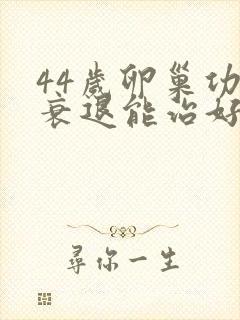 44歲卵巢功
衰退能治好
尋你一生